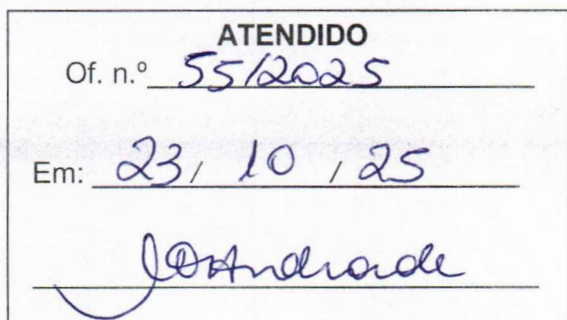 ATENDIDO
Of. n.º 55/2025
Em: 23 / 10 / 25
Andrade